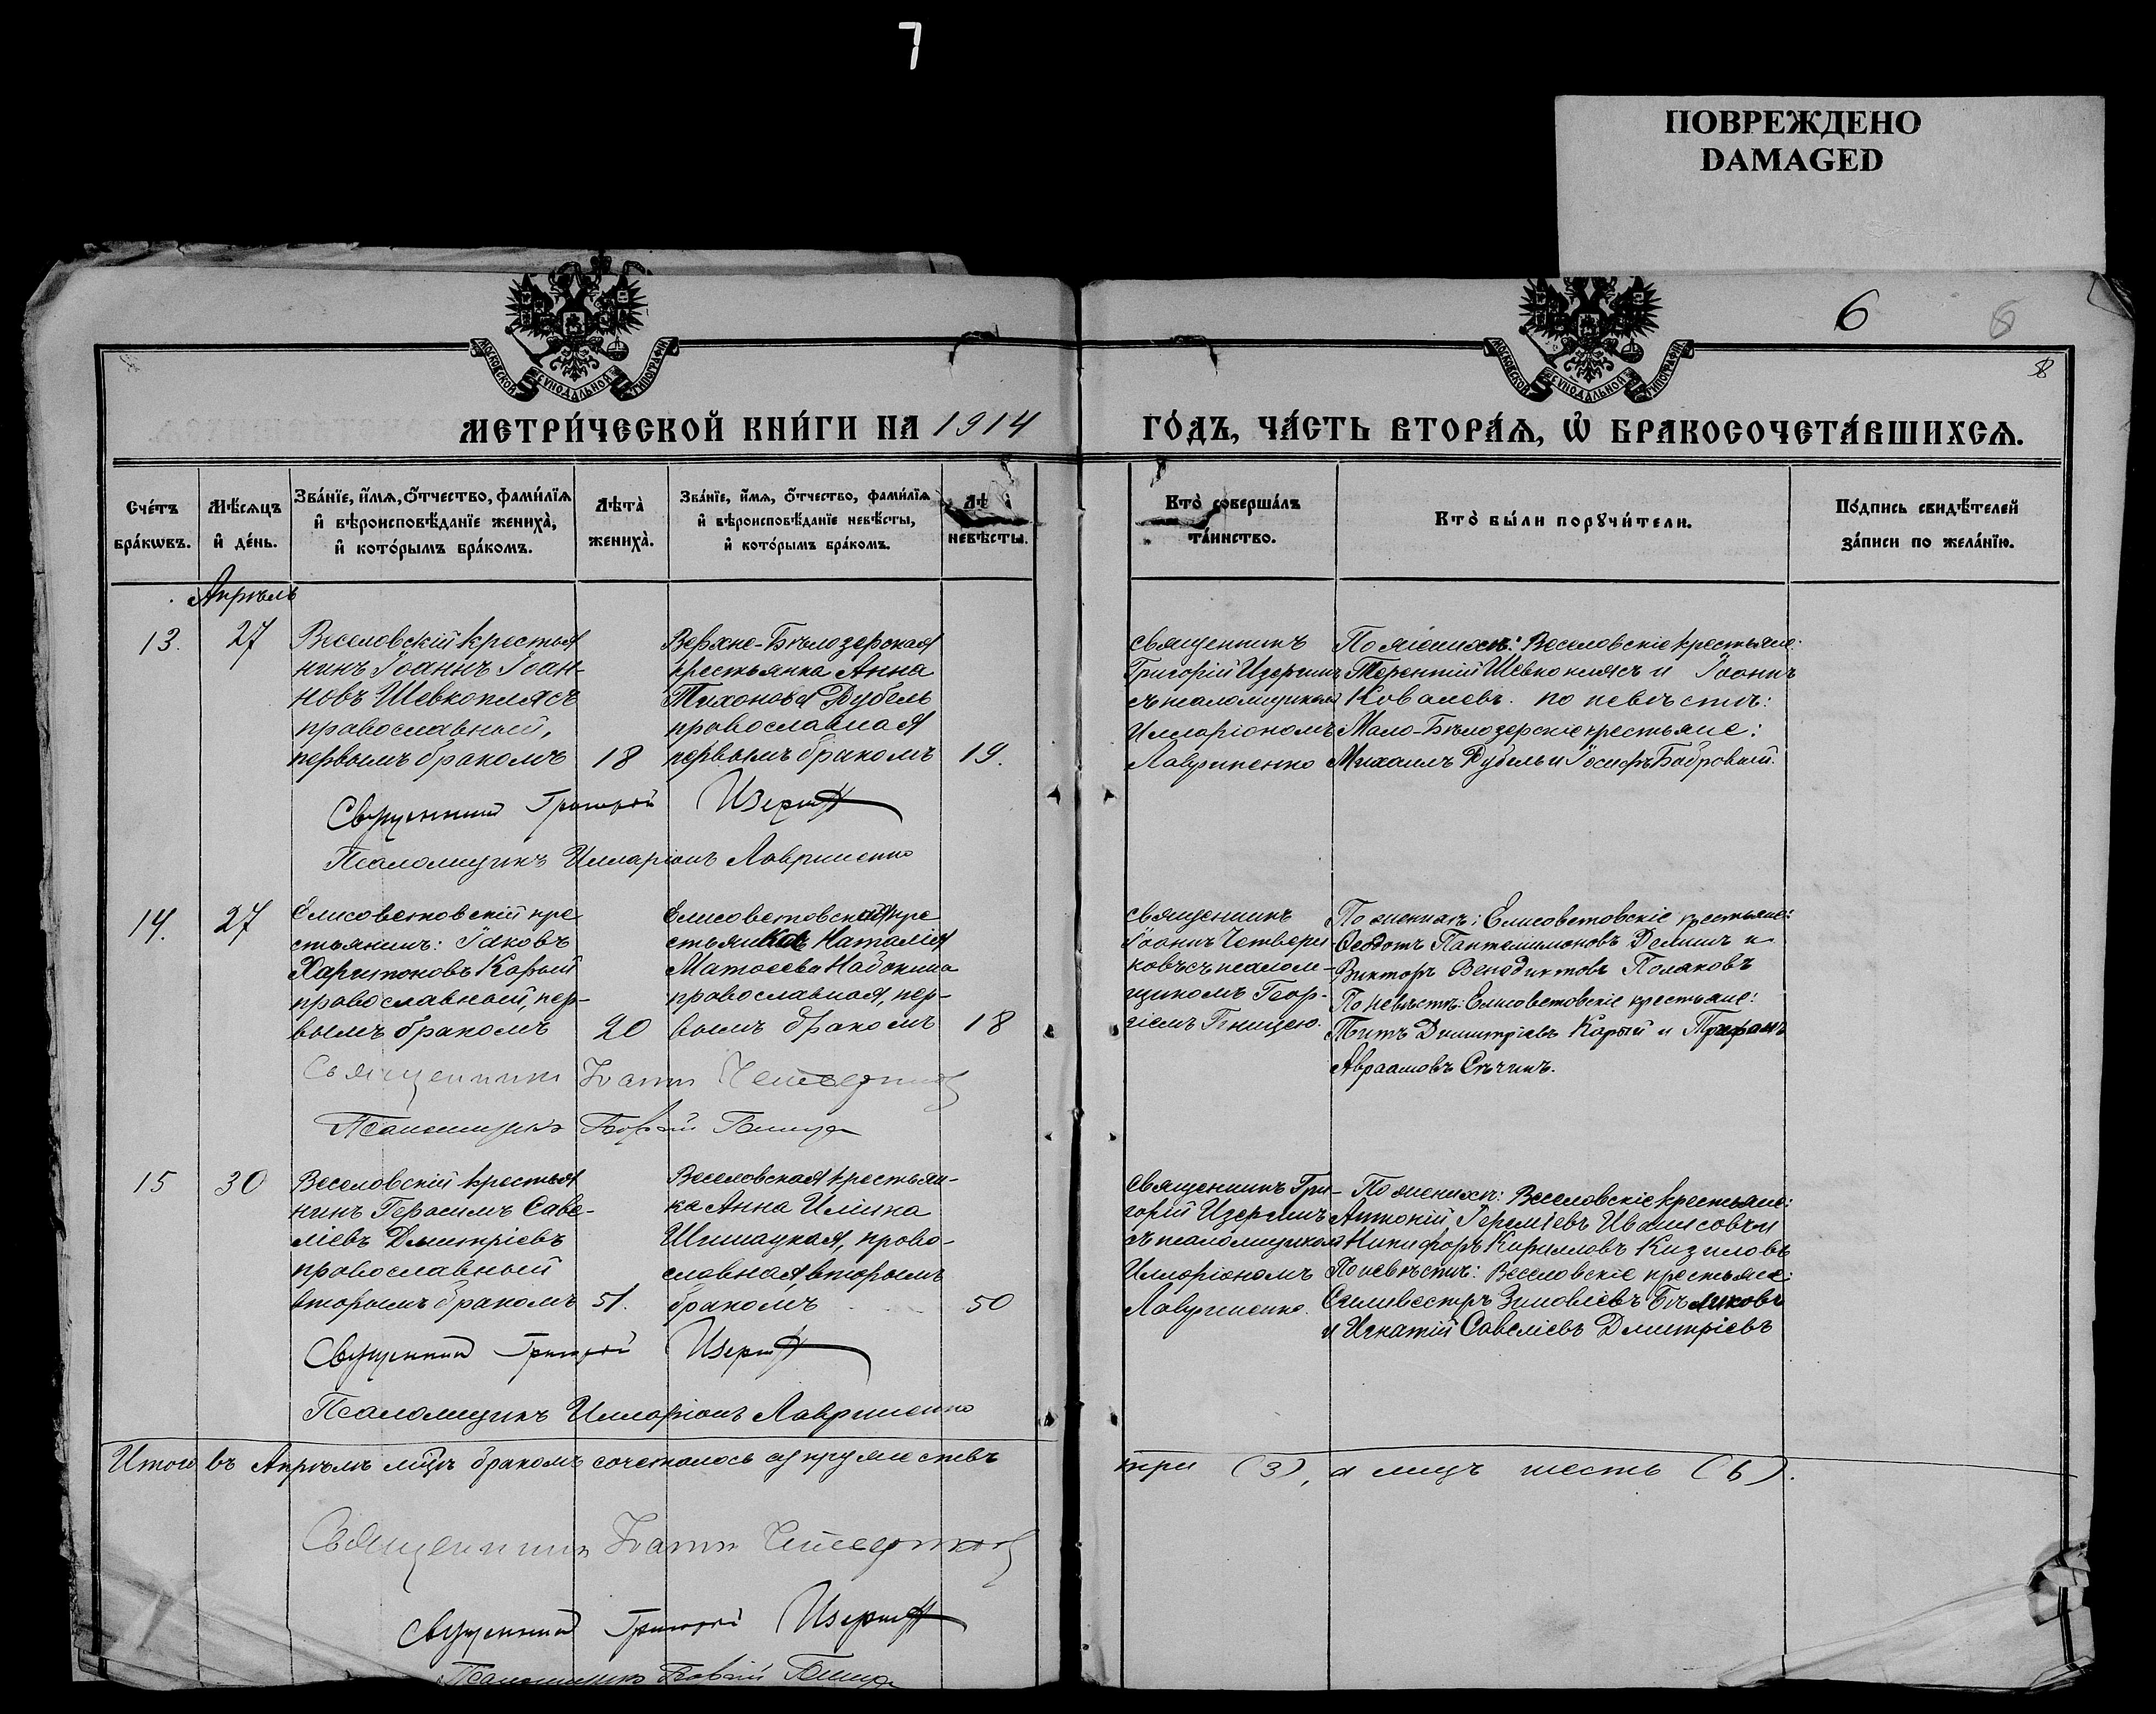 7
ПОВРЕЖДЕНО
DAMAGED
6
6
8
МОСКОВСКОЙ СУНОДАЛЬНОЙ ТИПОГРАФІИ
МОСКОВСКОЙ СУНОДАЛЬНОЙ ТИПОГРАФІИ
МЕТРИ́ЧЕСКОЙ КНИ́ГИ НА 1914
ГО́ДЪ, ЧА́СТЬ ВТОРА́Ѧ, Ѡ҆ БРАКОСОЧЕТА́ВШИХСѦ.
Сче́тъ
бра́кѡвъ.
Мѣ́сѧцъ
и҆ де́нь.
Зва́нїе, и҆́мѧ, ѻ҆́тчество, фами́лїѧ
и҆ вѣроисповѣ́данїе жениха̀,
и҆ кото́рымъ бра́комъ.
Лѣта̀
жениха̀.
Зва́нїе, и҆́мѧ, ѻ҆́тчество, фами́лїѧ
и҆ вѣроисповѣ́данїе невѣ́сты,
и҆ кото́рымъ бра́комъ.
Лѣ
невѣ́сты.
Кто̀ соверша́лъ
та́инство.
Кто̀ бы́ли порꙋчи́тели.
По́дпись свидѣ́телей
за́писи по жела́нїю.
Апрѣль
13.
27
Веселовскій крестья
нинъ Іоаннъ Іоан-
новъ Шевкоплясъ
православный,
первымъ бракомъ
18
Верхне-Бѣлозерская
крестьянка Анна
Тихонова Дубель
православная
первымъ бракомъ
19.
священникъ
Григорій Изергинъ
съ псаломщикомъ
Илларіономъ
Лавриненко
По женихѣ: Веселовскіе крестьяне:
Терентій Шевкоплясъ и Іоаннъ
Ковалевъ. по невѣстѣ:
Мало-Бѣлозерскіе крестьяне:
Михаилъ Дубель и Іосифъ Бобровый.
Священникъ Григорій Изергинъ
Псаломщикъ Илларіонъ Лавриненко
14.
27
Елисоветовскій кре
стьянинъ: Іаковъ
Харитоновъ Карый
православный, пер-
вымъ бракомъ
20
Елисоветовская кре
стьянка Наталія
Матѳеева Набокина
православная, пер-
вымъ бракомъ
18
священникъ
Іоаннъ Четвери
ковъ съ псалом-
щикомъ Геор-
гіемъ Гницею.
По женихѣ: Елисоветовскіе крестьяне:
Ѳеодотъ Пантелимоновъ Деминъ и
Викторъ Венедиктовъ Поляковъ
По невѣстѣ: Елисоветовскіе крестьяне:
Титъ Димитріевъ Карый и Трифонъ
Авраамовъ Сѣчинъ.
Священникъ Іоаннъ Четвериковъ
Псаломщикъ Георгій Гница
15
30
Веселовскій крестья
нинъ Герасимъ Саве-
ліевъ Дмитріевъ
православный
вторымъ бракомъ
51.
Веселовская крестьян-
ка Анна Ильина
Шишацкая, право-
славная вторымъ
бракомъ
50
священникъ Гри-
горій Изергинъ
съ псаломщикомъ
Илларіономъ
Лавриненко.
По женихѣ: Веселовскіе крестьяне:
Антоній Іереміевъ и
Никифоръ Кирилловъ Кизиловъ
По невѣстѣ: Веселовскіе крестьяне:
Сильвестръ Зиновіевъ Бѣликовъ
и Игнатій Савеліевъ Дмитріевъ
Священникъ Григорій Изергинъ
Псаломщикъ Илларіонъ Лавриненко
Итого въ Апрѣлѣ м-цѣ бракомъ сочеталось супружествъ
три (3), а лицъ шесть (6).
Священникъ Іоаннъ Четвериковъ
Священникъ Григорій Изергинъ
Псаломщикъ Георгій Гница